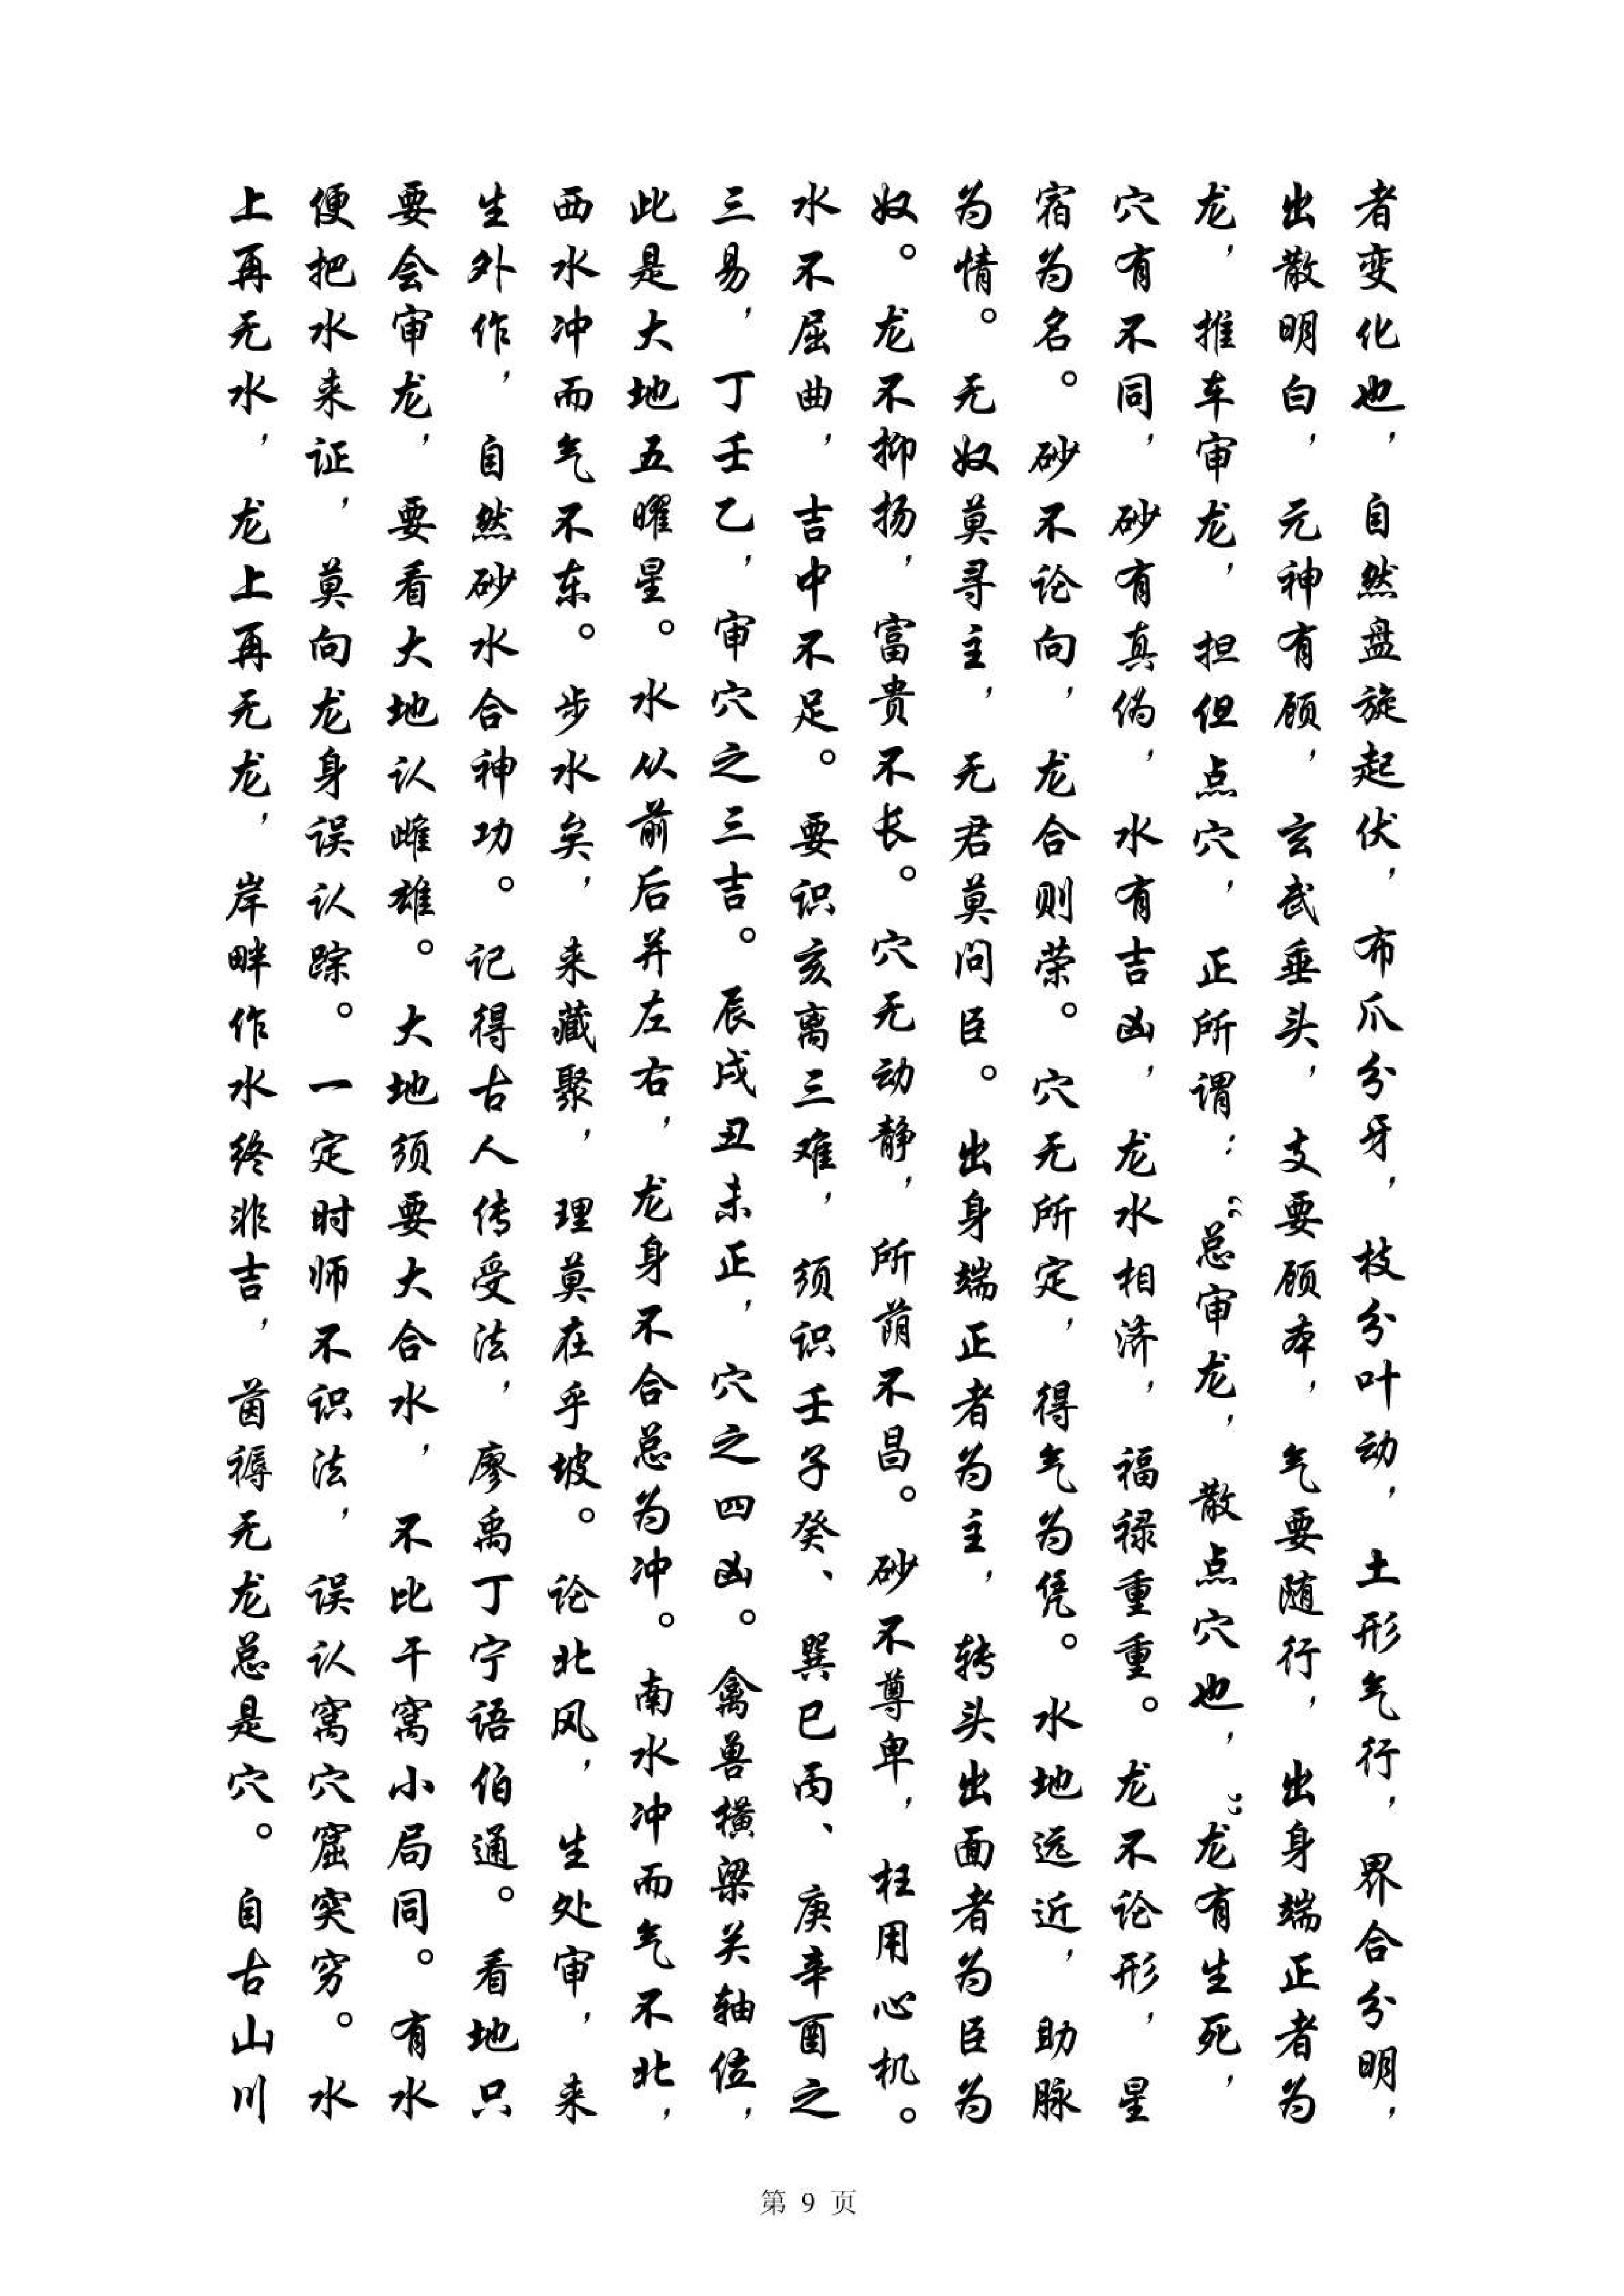 者变化也，自然盘旋起伏，布爪分牙，枝分叶动，土形气行，界合分明，
出散明白，元神有顾，玄武垂头，支要顾本，气要随行，出身端正者为
龙，推车审龙，担但点穴，正所谓：“总审龙，散点穴也，”龙有生死，
穴有不同，砂有真伪，水有吉凶，龙水相济，福禄重重。龙不论形，星
宿为名。砂不论向，龙合则荣。穴无所定，得气为凭。水地远近，助脉
为情。无奴莫寻主，无君莫问臣。出身端正者为主，转头出面者为臣为
奴。龙不抑扬，富贵不长。穴无动静，所荫不昌。砂不尊卑，枉用心机。
水不屈曲，吉中不足。要识亥离三难，须识壬子癸、巽巳丙、庚辛酉之
三易，丁壬乙，审穴之三吉。辰戌丑未正，穴之四凶。禽兽横梁关轴位，
此是大地五曜星。水从前后并左右，龙身不合总为冲。南水冲而气不北，
西水冲而气不东。步水矣，来藏聚，理莫在乎坡。论北风，生处审，来
生外作，自然砂水合神功。记得古人传受法，廖禹丁宁语伯通。看地只
要会审龙，要看大地认雌雄。大地须要大合水，不比干窝小局同。有水
便把水来证，莫向龙身误认踪。一定时师不识法，误认窝穴窟突穷。水
上再无水，龙上再无龙，岸畔作水终非吉，茵褥无龙总是穴。自古山川
第 9 页